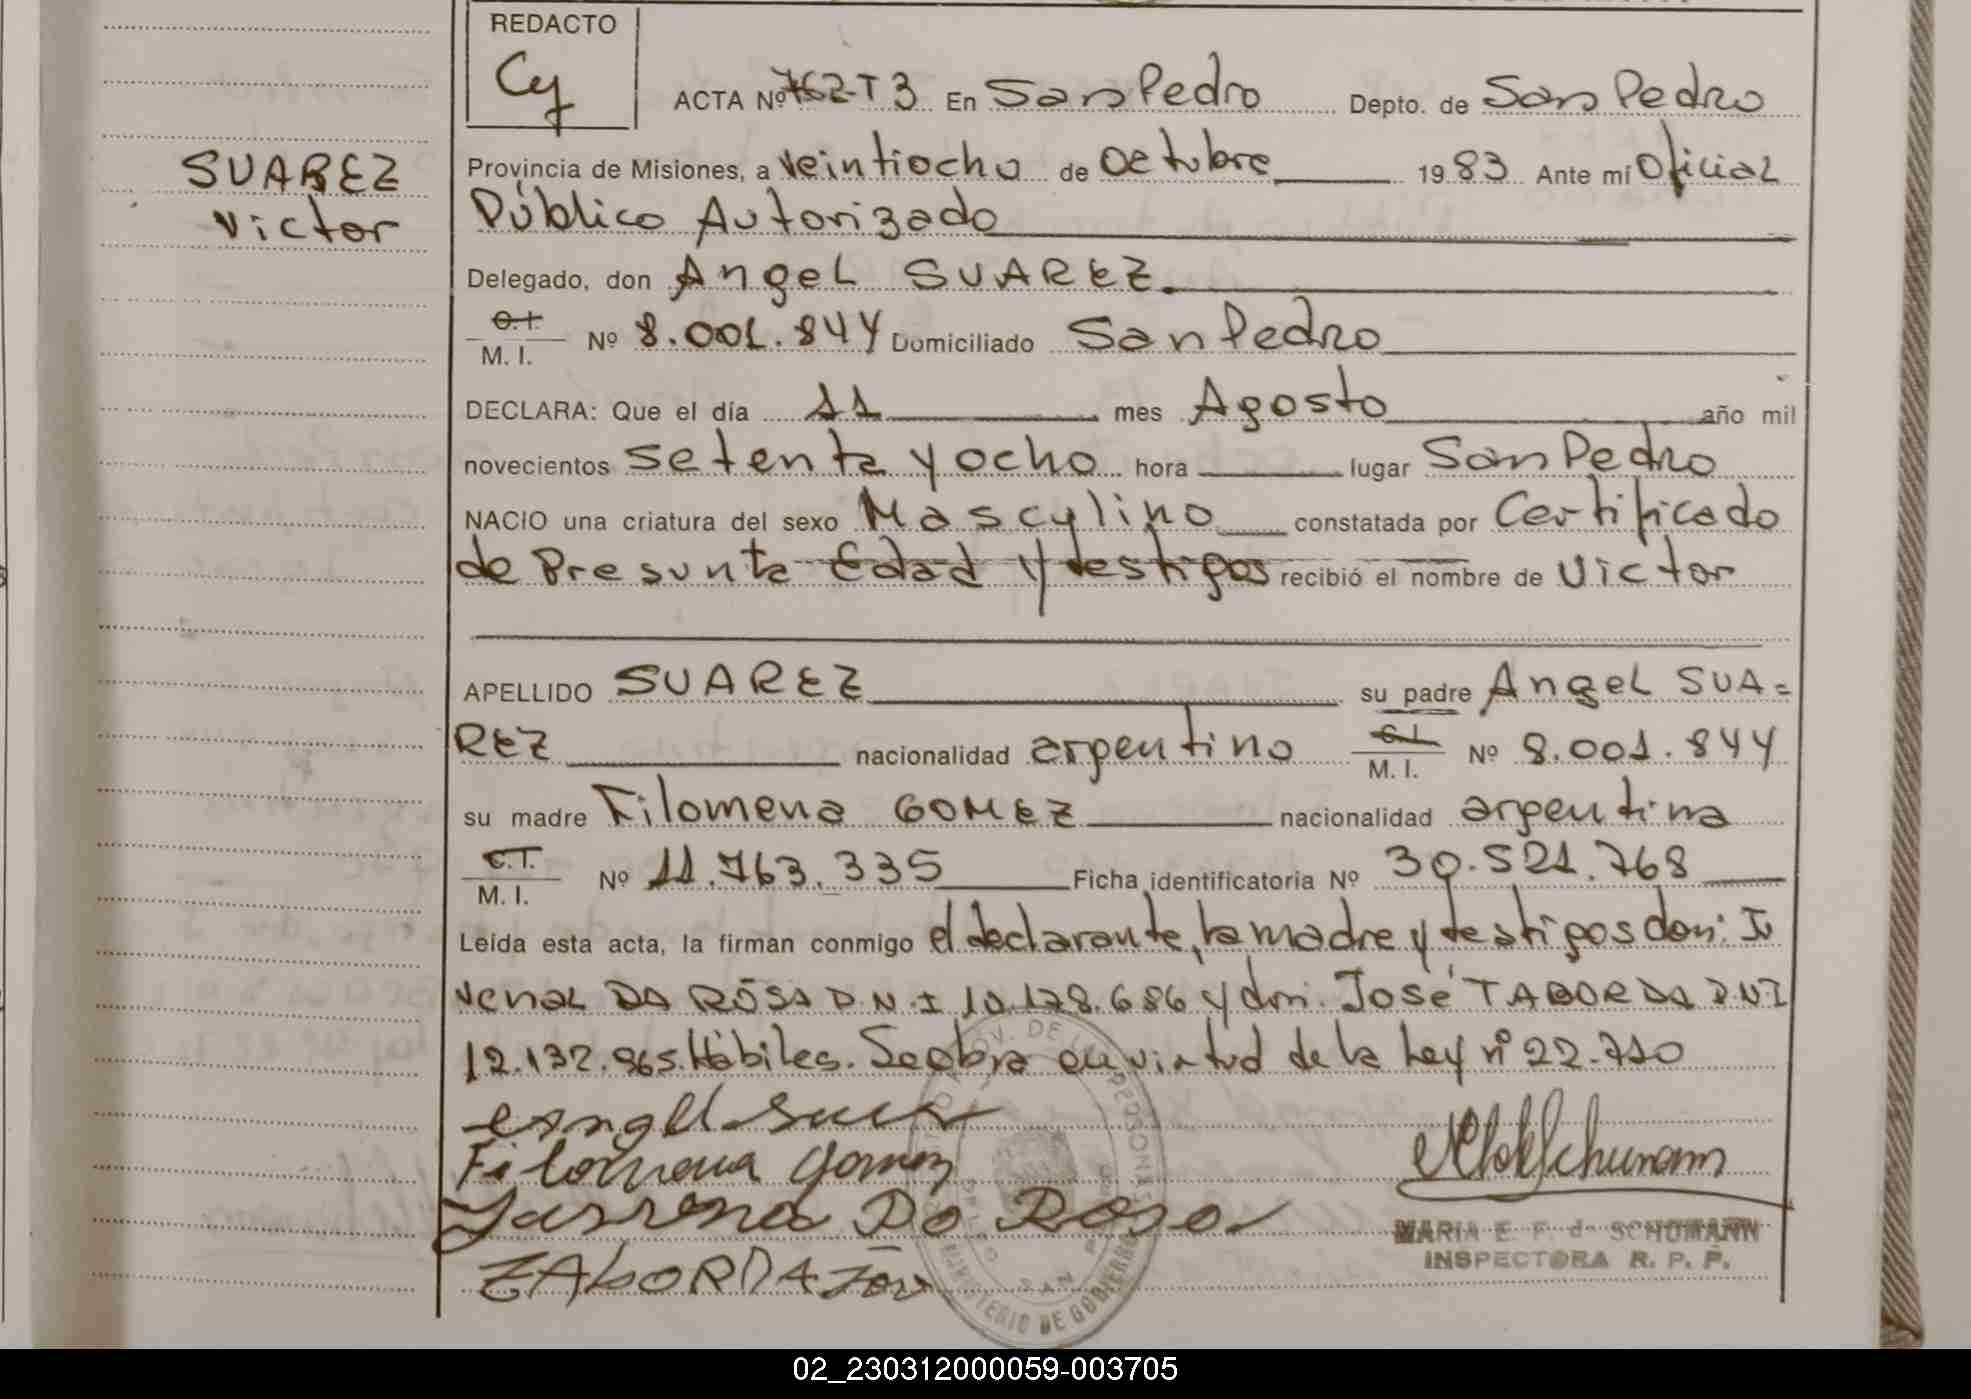 REDACTO
Cy
ACTA Nº 762-T3 En San Pedro Depto. de San Pedro
SUAREZ
Victor
Provincia de Misiones, a veintiocho de octubre 1983 Ante mí Oficial
Público Autorizado
Delegado, don Angel SUAREZ.
C.I.
M. I. Nº 8.001.844 Domiciliado San Pedro
DECLARA: Que el día 11 mes Agosto año mil
novecientos setenta y ocho hora lugar San Pedro
NACIO una criatura del sexo Masculino constatada por Certificado
de Presunta Edad y testigos recibió el nombre de Victor
APELLIDO SUAREZ su padre Angel SUA=
REZ nacionalidad argentino C.I. M. I. Nº 8.001.844
su madre Filomena GOMEZ nacionalidad argentina
C.I.
M. I. Nº 11.763.335 Ficha identificatoria Nº 30.521.768
Leída esta acta, la firman conmigo el declarante, la madre y testigos don: Ju
venal DA ROSA D.N.I 10.178.686 y don. José TABORDA D.N.I
12.132.965. Hábiles. Se obra en virtud de la Ley nº 22.710
Filomena Gomez
Da Rosa
TABORDA José
MARIA E. F. de SCHUMANN
INSPECTORA R. P. P.
PROV. DE LAS PERSONAS
SAN P
MINISTERIO DE GOBIERNO
02_230312000059-003705